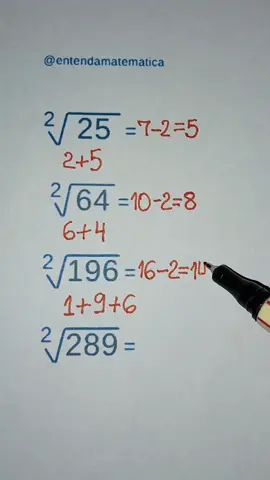 @entendamatematica
²√25 = 7-2=5
2+5
²√64 = 10-2=8
6+4
²√196 = 16-2=14
1+9+6
²√289 =